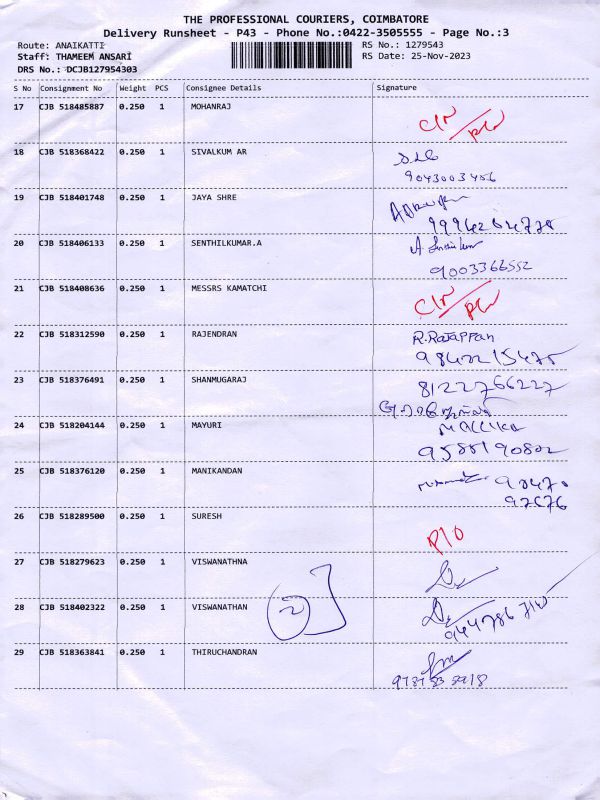 THE PROFESSIONAL COURIERS, COIMBATORE
Delivery Runsheet - P43 - Phone No.:0422-3505555 - Page No.:3
Route: ANAIKATTI RS No.: 1279543
Staff: THAMEEM ANSARI RS Date: 25-Nov-2023
DRS No.: DCJB127954303
S No Consignment No Weight PCS Consignee Details Signature
17 CJB 518485887 0.250 1 MOHANRAJ
18 CJB 518368422 0.250 1 SIVALKUM AR
9043003456
19 CJB 518401748 0.250 1 JAYA SHRE
20 CJB 518406133 0.250 1 SENTHILKUMAR.A
9003366552
21 CJB 518408636 0.250 1 MESSRS KAMATCHI
22 CJB 518312590 0.250 1 RAJENDRAN R.Rajappan
9842215475
23 CJB 518376491 0.250 1 SHANMUGARAJ 8122766227
24 CJB 518204144 0.250 1 MAYURI Mallika
9588190802
25 CJB 518376120 0.250 1 MANIKANDAN
26 CJB 518289500 0.250 1 SURESH
P/O
27 CJB 518279623 0.250 1 VISWANATHNA
28 CJB 518402322 0.250 1 VISWANATHAN 2
29 CJB 518363841 0.250 1 THIRUCHANDRAN